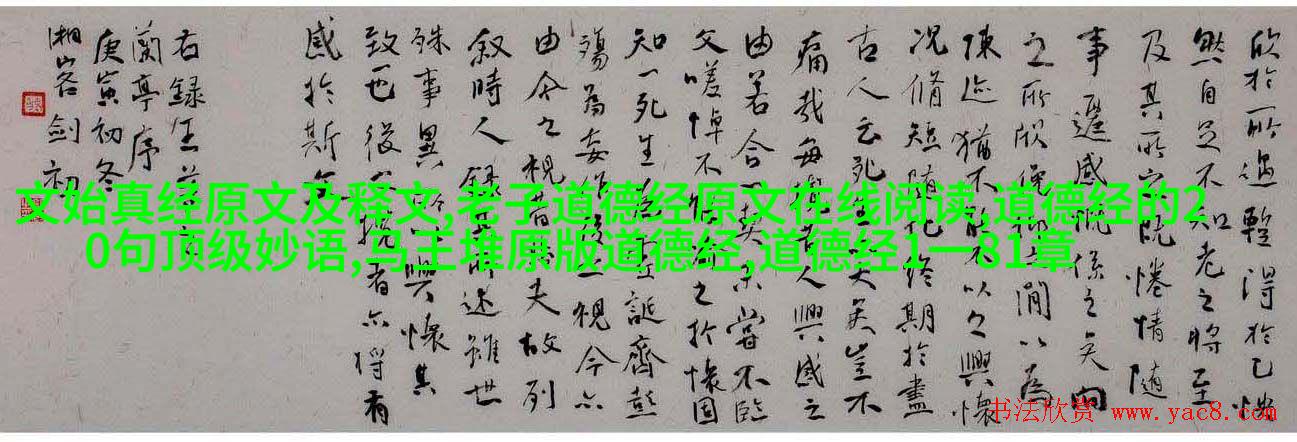 欣於一所遇蹔得於己怏
然自足不知老之將至
及其所之既惓情隨
事遷感慨係之矣向
之所欣俛仰之間以為
陳迹猶不能不以之興懷
況脩短隨化終期於盡
古人云死生亦大矣豈不
痛哉每攬昔人興感之
由若合一契未嘗不臨
文嗟悼不能喻之於懷固
知一死生為虛誕齊彭
殤為妄作後之視今亦
由今之視昔悲夫故列
敘時人録其所述雖世
殊事異所以興懷其
致一也後之攬者亦將有
感於斯文
右録王羲之
蘭亭序
庚寅初冬
湘客劍初
文始真经原文及释文,老子道德经原文在线阅读,道德经的2
0句顶级妙语,马王堆原版道德经,道德经1一81章
书法欣赏 www.yac8.com